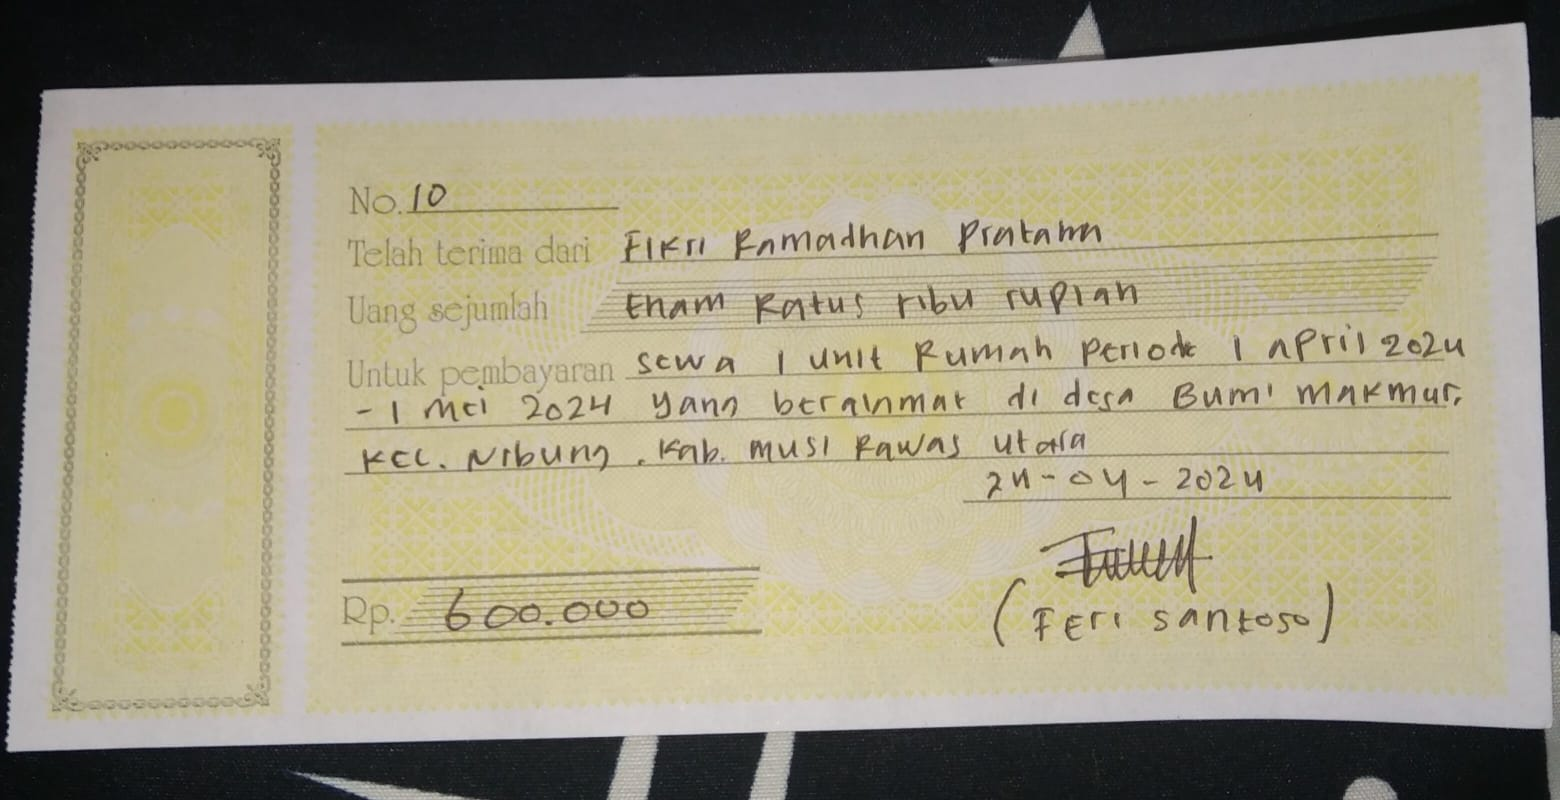 No. 10
Telah terima dari Fikri Ramadhan Pratama
Uang sejumlah Enam Ratus ribu rupiah
Untuk pembayaran sewa 1 unit Rumah Periode 1 April 2024
- 1 Mei 2024 yang beralamat di desa Bumi Makmur,
Kec. Nibung, Kab. Musi Rawas Utara
24-04-2024
Rp. 600.000
(Feri Santoso)